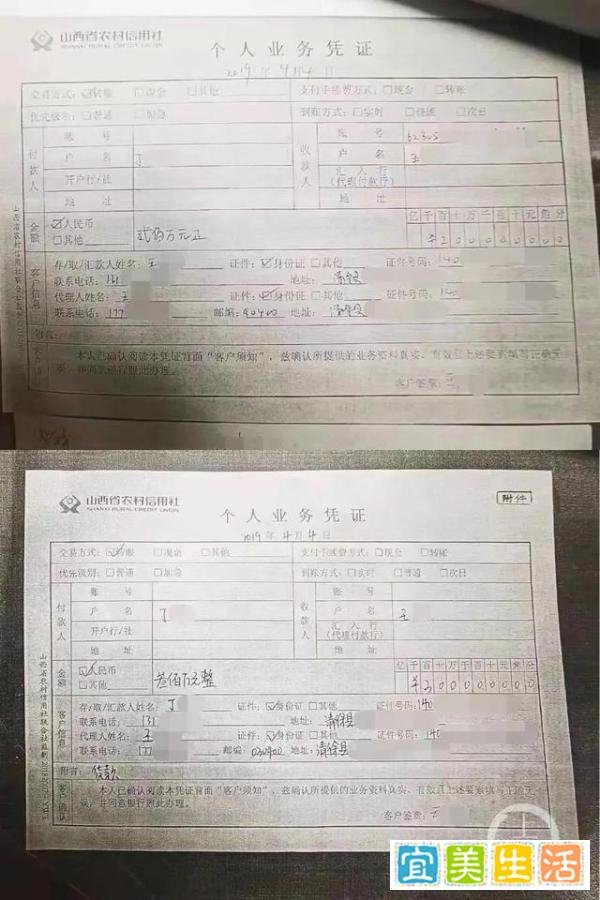 山西省农村信用社
SHANXI RURAL CREDIT UNION
个人业务凭证
2019年4月4日
交易方式：☑转账 □现金 □其他 支付手续费方式：□现金 □转账
优先级别：□普通 □加急 到账方式：□实时 □普通 □次日
付款人 账号 收款人 账号 62305
户名 丁 户名 王
开户行/社 汇入行（代理付款行）
地址 地址
金额 ☑人民币 亿千百十万千百十元角分
□其他 贰佰万元正 ¥200000000
客户信息 存/取/汇款人姓名：王 证件：☑身份证 □其他 证件号码：140
联系电话：131 地址：清徐县
代理人姓名：王 证件：☑身份证 □其他 证件号码：140
联系电话：177 邮编： 地址：清徐县
附言：
客户确认 本人已确认阅读本凭证背面“客户须知”，兹确认所提供的业务资料真实、有效且上述要素填写正确无误，并同意银行照此办理。
客户签章：王
山西省农村信用社
SHANXI RURAL CREDIT UNION
附件
个人业务凭证
2019年4月4日
交易方式：☑转账 □现金 □其他 支付手续费方式：□现金 □转账
优先级别：□普通 □加急 到账方式：□实时 □普通 □次日
付款人 账号 收款人 账号
户名 丁 户名 王
开户行/社 汇入行（代理付款行）
地址 地址
金额 ☑人民币 亿千百十万千百十元角分
□其他 叁佰万元整 ¥300000000
客户信息 存/取/汇款人姓名：丁 证件：☑身份证 □其他 证件号码：140
联系电话：131 地址：清徐县
代理人姓名：王 证件：☑身份证 □其他 证件号码：140
联系电话：177 邮编：030400 地址：清徐县
附言：货款
客户确认 本人已确认阅读本凭证背面“客户须知”，兹确认所提供的业务资料真实、有效且上述要素填写正确无误，并同意银行照此办理。
客户签章：王
宜美生活